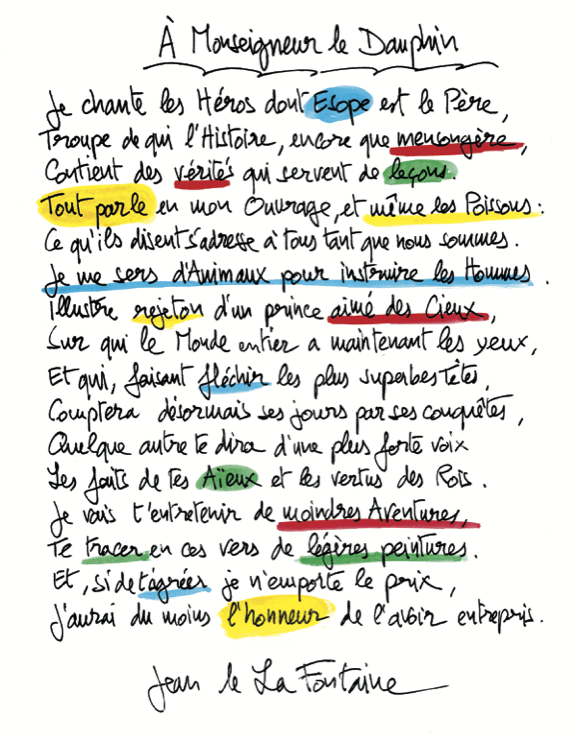 À Monseigneur le Dauphin
Je chante les Héros dont Esope est le Père,
Troupe de qui l'Histoire, encore que mensongère,
Contient des vérités qui servent de leçons.
Tout parle en mon Ouvrage, et même les Poissons :
Ce qu'ils disent s'adresse à tous tant que nous sommes.
Je me sers d'Animaux pour instruire les Hommes.
Illustre rejeton d'un prince aimé des Cieux,
Sur qui le Monde entier a maintenant les yeux,
Et qui, faisant fléchir les plus superbes Têtes,
Comptera désormais ses jours par ses conquêtes,
Quelque autre te dira d'une plus forte voix
Les faits de tes Aïeux et les vertus des Rois.
Je vais t'entretenir de moindres Aventures,
Te tracer en ces vers de légères peintures.
Et, si de t'agréer je n'emporte le prix,
J'aurai du moins l'honneur de l'avoir entrepris.
Jean le La Fontaine